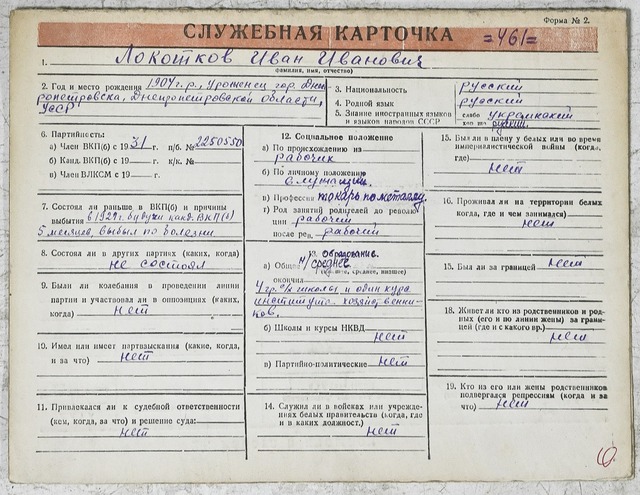 Форма № 2.
СЛУЖЕБНАЯ КАРТОЧКА =461=
1. Локотков Иван Иванович
фамилия, имя, отчество)
2. Год и место рождения 1904 г.р., Уроженец гор. Днеп
ропетровска, Днепропетровской области,
УССР
3. Национальность русский
4. Родной язык русский
5. Знание иностранных языков
и языков народов СССР слабо украинский
6. Партийность:
а) Член ВКП(б) с 1931 г. п/б. № 2250550
б) Канд. ВКП(б) с 19 г. к/к. №
в) Член ВЛКСМ с 19 г.
7. Состоял ли раньше в ВКП(б) и причины
выбытия в 1927 г. будучи канд. ВКП(б)
5 месяцев, выбыл по болезни
8. Состоял ли в других партиях (каких, когда)
не состоял
9. Были ли колебания в проведении линии
партии и участвовал ли в оппозициях (каких,
когда) нет
10. Имел или имеет партвзыскания (какие, когда,
и за что) нет
11. Привлекался ли к судебной ответственности
(кем, когда, за что) и решение суда:
нет
12. Социальное положение
а) По происхождению из
рабочих
б) По личному положению
служащий
в) Профессия токарь по металлу
г) Род занятий родителей до револю
ции рабочий
после рев. рабочий
13. Образование.
а) Общее н/среднее
(высшее, среднее, низшее)
окончил
4 гр. с/школы и один курс
института хозяйственни-
ков.
б) Школы и курсы НКВД
нет
в) Партийно-политические нет
14. Служил ли в войсках или учрежде-
ниях белых правительств (когда, где
и в каких должност.)
нет
15. Был ли в плену у белых или во время
империалистической войны (когда,
где)
нет
16. Проживал ли на территории белых
когда, где и чем занимался)
нет
15. Был ли за границей нет
18. Живет ли кто из родственников и род-
ных (его и по линии жены) за грани-
цей (где и с какого вр.)
нет
19. Кто из его или жены родственников
подвергался репрессиям (когда и за
что) нет